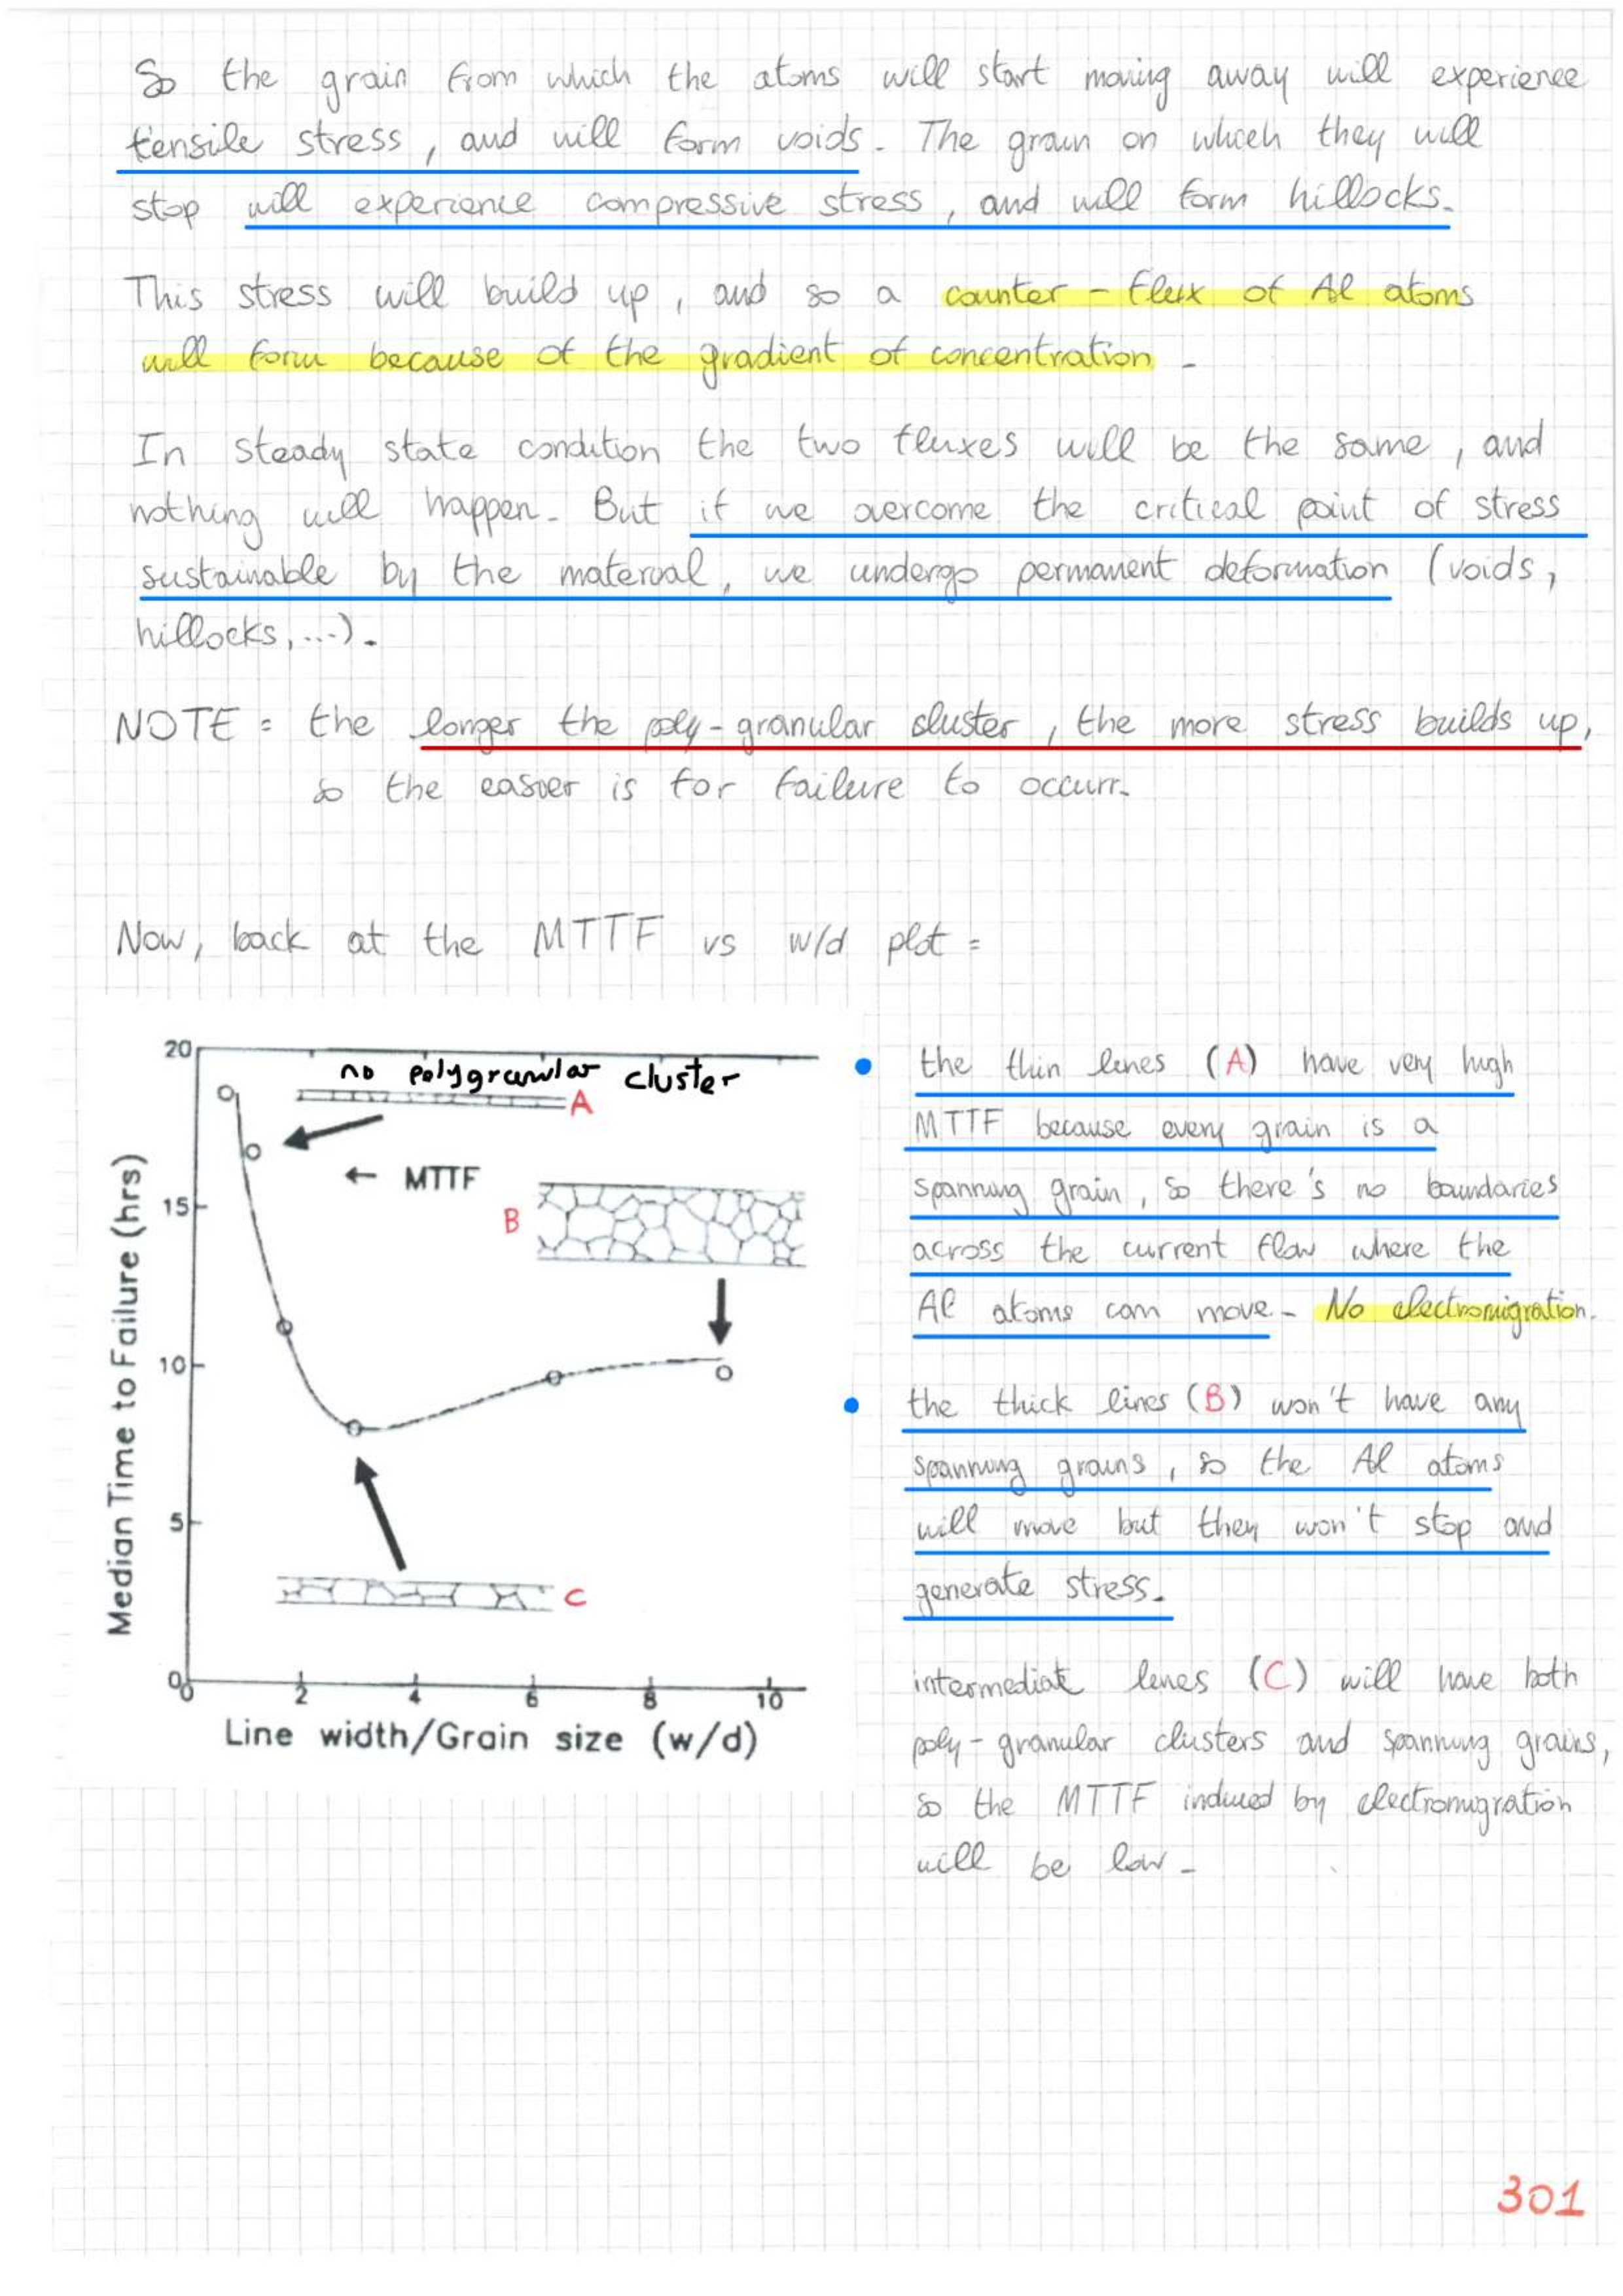 So the grain from which the atoms will start moving away will experience
tensile stress, and will form voids. The grain on which they will
stop will experience compressive stress, and will form hillocks.
This stress will build up, and so a counter-flux of Al atoms
will form because of the gradient of concentration.
In steady state condition the two fluxes will be the same, and
nothing will happen. But if we overcome the critical point of stress
sustainable by the material, we undergo permanent deformation (voids,
hillocks,...).
NOTE: the longer the poly-granular cluster, the more stress builds up,
so the easier is for failure to occurr.
Now, back at the MTTF vs w/d plot:
20
no polygranular cluster
A
← MTTF
B
15
10
5
C
0
0 2 4 6 8 10
Median Time to Failure (hrs)
Line width/Grain size (w/d)
• the thin lines (A) have very high
MTTF because every grain is a
spanning grain, so there's no boundaries
across the current flow where the
Al atoms can move. No electromigration.
• the thick lines (B) won't have any
spanning grains, so the Al atoms
will move but they won't stop and
generate stress.
intermediate lines (C) will have both
poly-granular clusters and spanning grains,
so the MTTF induced by electromigration
will be low.
301